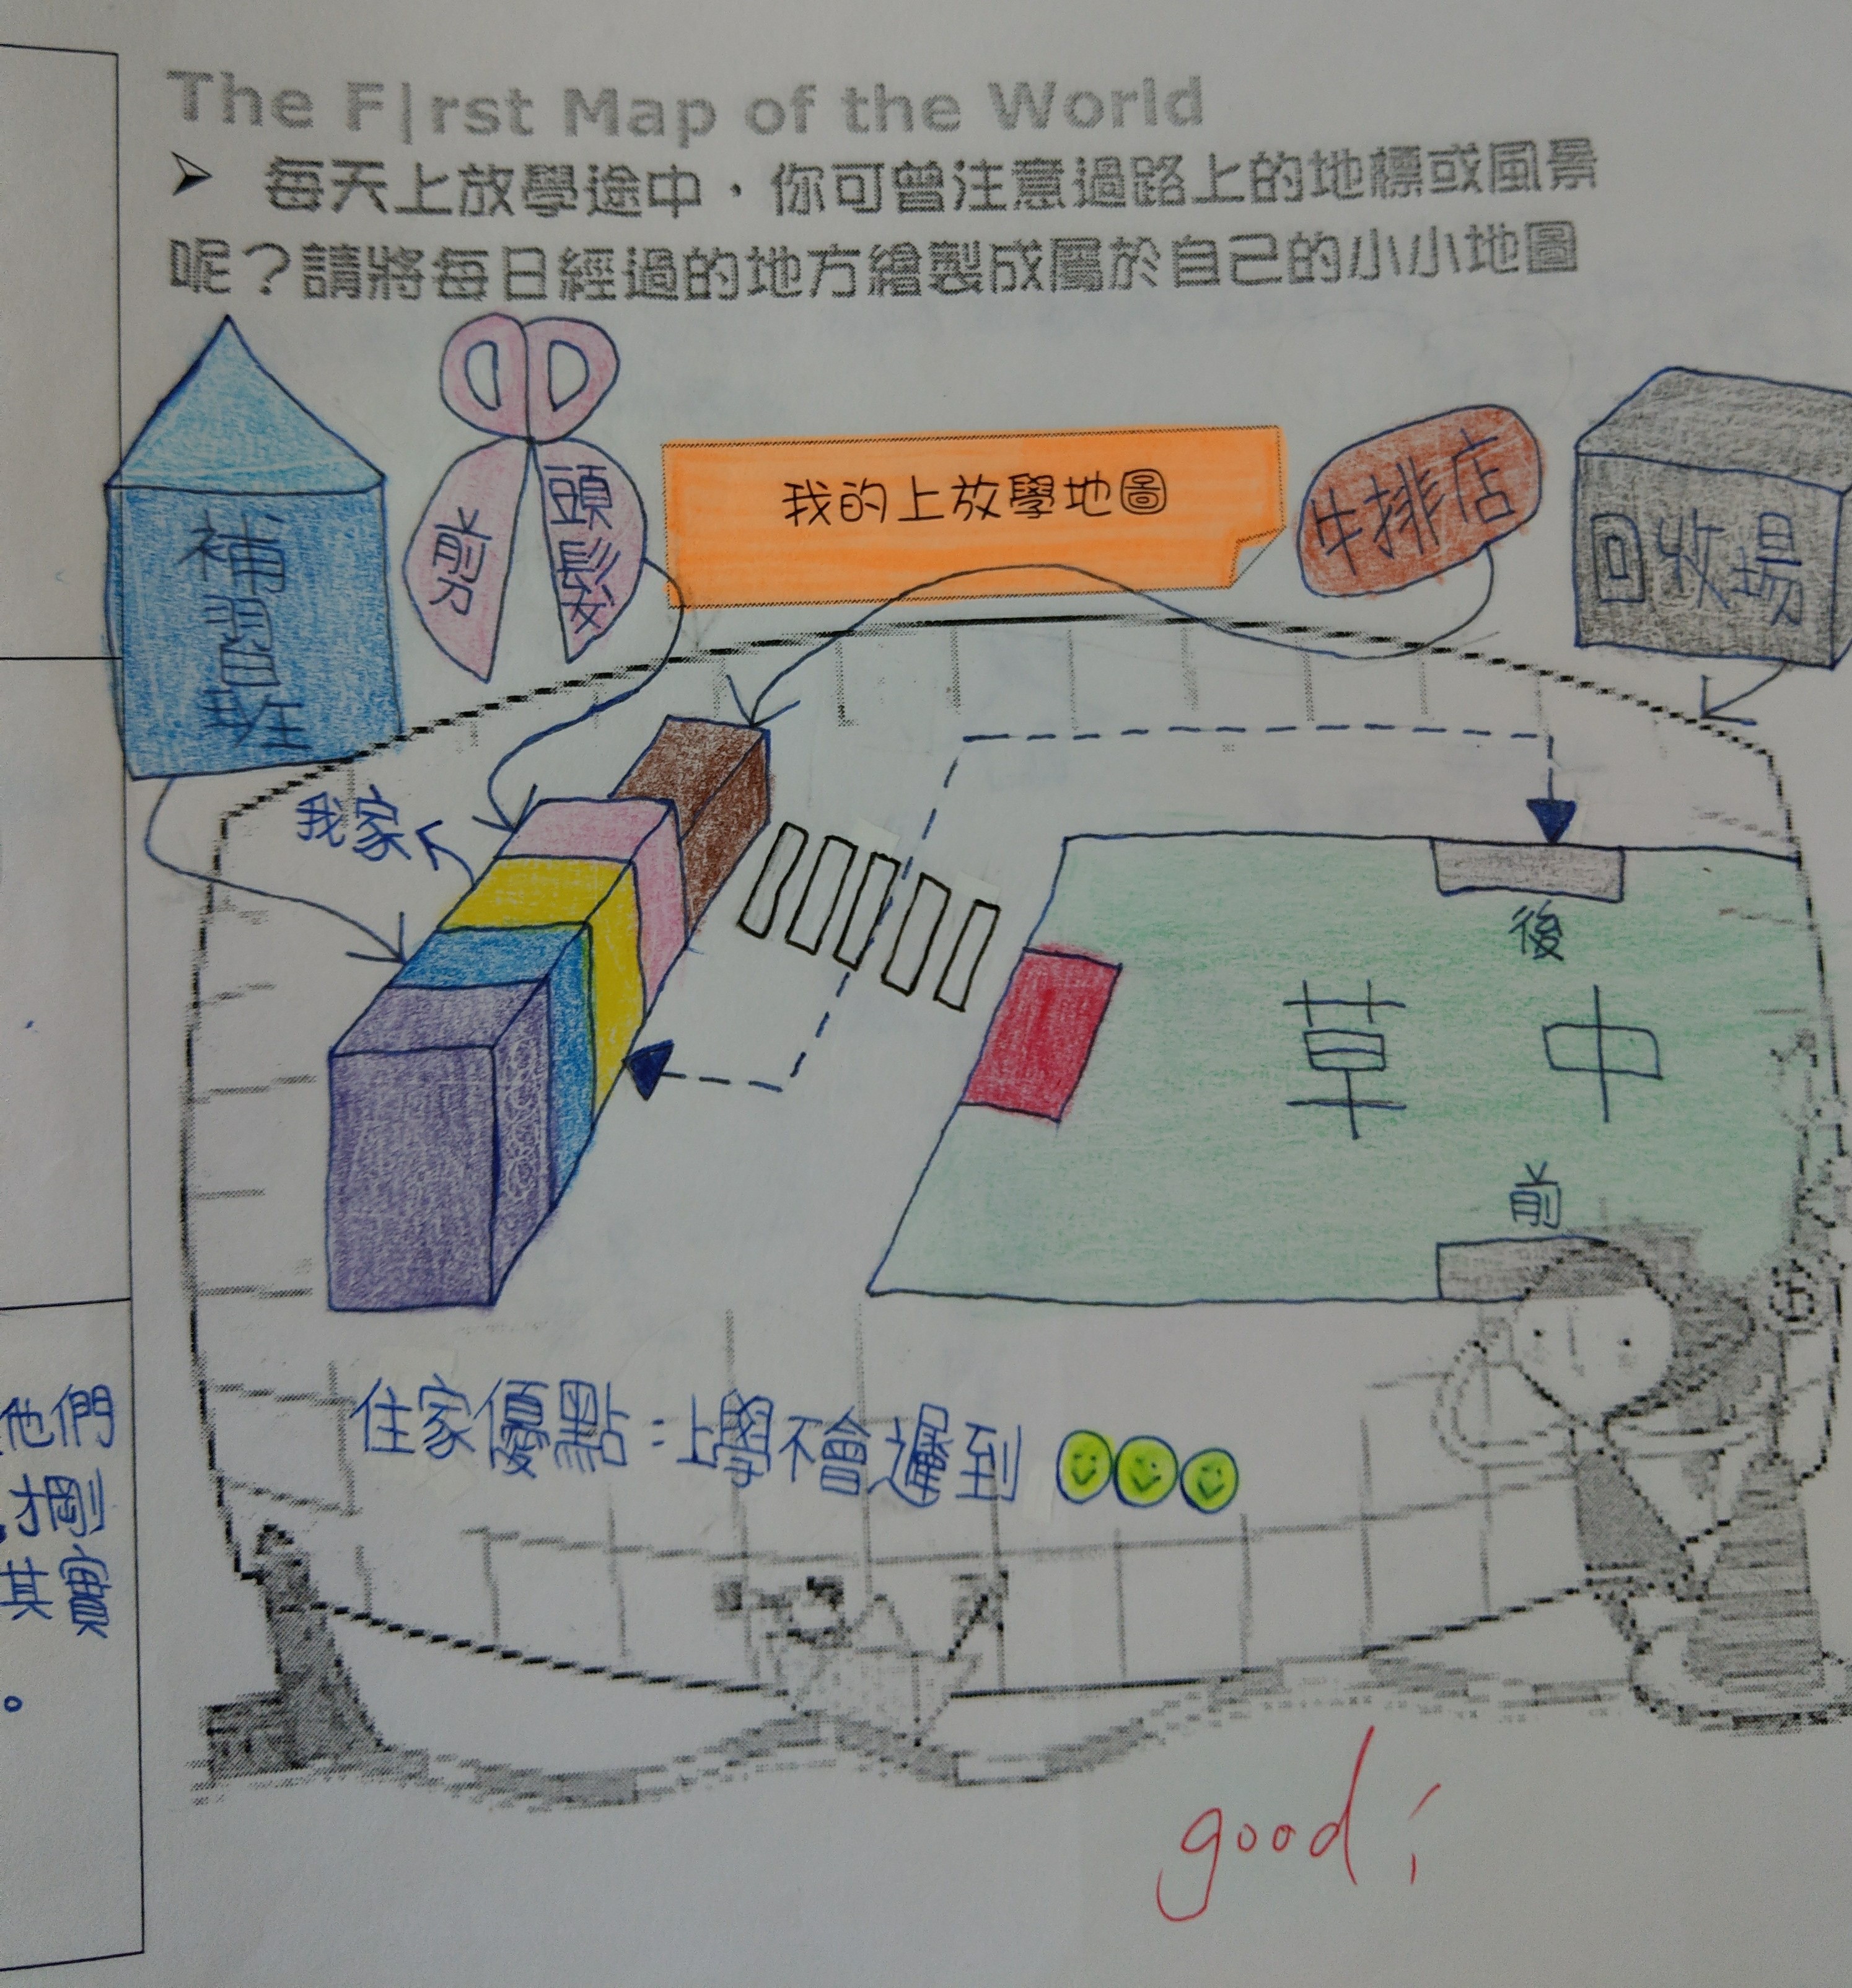 The F|rst Map of the World
➢ 每天上放學途中，你可曾注意過路上的地標或風景
呢？請將每日經過的地方繪製成屬於自己的小小地圖
補習班
剪
頭髮
我的上放學地圖
牛排店
回收場
我家
後
草中
前
住家優點：上學不會遲到
good
他們
才剛
其實
。